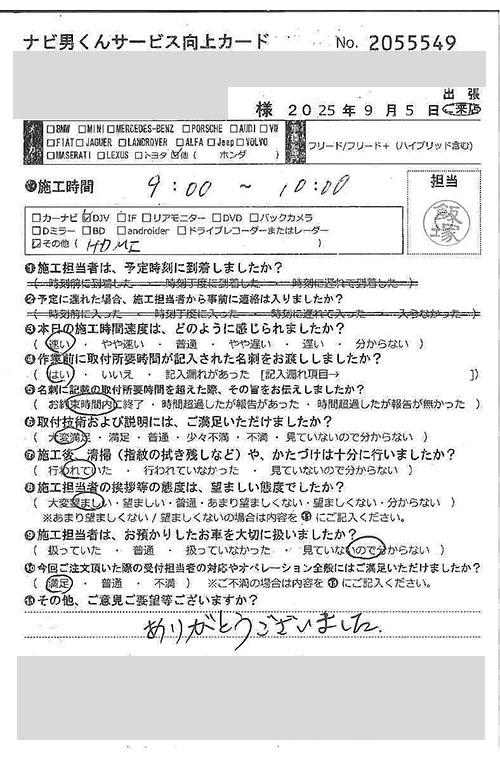 ナビ男くんサービス向上カード No. 2055549
出張
様 2025年9月5日 ご来店
□BMW □MINI □MERCEDES-BENZ □PORSCHE □AUDI □VW
□FIAT □JAGUER □LANDROVER □ALFA □Jeep □VOLVO
□MASERATI □LEXUS □トヨタ ☑他 ( ホンダ )
フリード/フリード+ (ハイブリッド含む)
施工時間 9:00 ~ 10:00
担当
飯塚
□カーナビ ☑DJV □IF □リアモニター □DVD □バックカメラ
□Dミラー □BD □androider □ドライブレコーダーまたはレーダー
☑その他 ( HDMI )
❶施工担当者は、予定時刻に到着しましたか?
( 時刻前に到着した ・ 時刻丁度に到着した ・ 時刻に遅れて到着した )
❷予定に遅れた場合、施工担当者から事前に連絡は入りましたか?
( 時刻前に入った ・ 時刻丁度に入った ・ 時刻に遅れて入った ・ 入らなかった )
❸本日の施工時間速度は、どのように感じられましたか?
( 速い ・ やや速い ・ 普通 ・ やや遅い ・ 遅い ・ 分からない )
❹作業前に取付所要時間が記入された名刺をお渡ししましたか?
( はい ・ いいえ ・ 記入漏れがあった [記入漏れ項目→ ])
❺名刺に記載の取付所要時間を超えた際、その旨をお伝えしましたか?
( お約束時間内に終了 ・ 時間超過したが報告があった ・ 時間超過したが報告が無かった )
❻取付技術および説明には、ご満足いただけましたか?
( 大変満足 ・ 満足 ・ 普通 ・ 少々不満 ・ 不満 ・ 見ていないので分からない )
❼施工後、清掃(指紋の拭き残しなど)や、かたづけは十分に行いましたか?
( 行われていた ・ 行われていなかった ・ 見ていないので分からない )
❽施工担当者の挨拶等の態度は、望ましい態度でしたか?
( 大変望ましい ・ 望ましい ・ 普通 ・ あまり望ましくない ・ 望ましくない ・ 分からない )
※あまり望ましくない / 望ましくないの場合は内容を⓫にご記入ください。
❾施工担当者は、お預かりしたお車を大切に扱いましたか?
( 扱っていた ・ 普通 ・ 扱っていなかった ・ 見ていないので分からない )
❿今回ご注文頂いた際の受付担当者の対応やオペレーション全般にはご満足いただけましたか?
( 満足 ・ 普通 ・ 不満 ) ※ご不満の場合は内容を⓫にご記入ください。
⓫その他、ご意見ご要望等ございますか?
ありがとうございました.